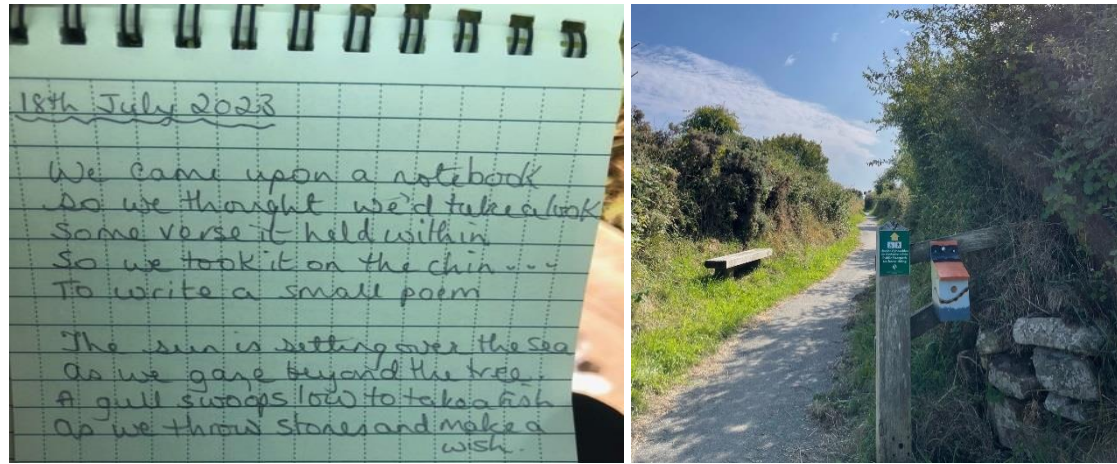 18th July 2023
We came upon a notebook
So we thought we'd take a look
Some verse it held within
So we took it on the chin...
To write a small poem
The sun is setting over the sea
As we gaze beyond the tree
A gull swoops low to take a fish
As we throw stones and make a
wish.